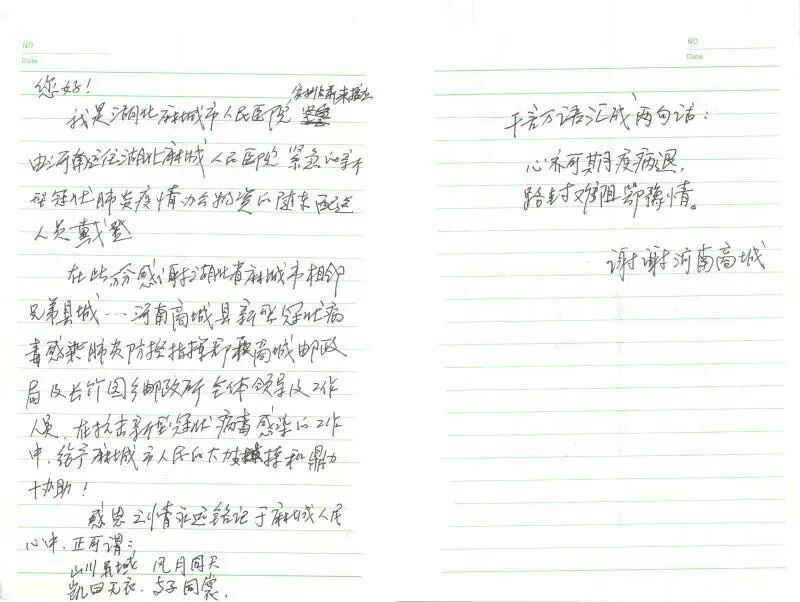 NO
Date
您好!
我是湖北麻城市人民医院
由河南运往湖北麻城人民医院紧急的新
型冠状肺炎疫情办公物资的随车配送
人员戴登
在此万分感谢湖北省麻城市相邻
兄弟县城一河南商城县新型冠状病
毒感染肺炎防控指挥部和商城邮政
局及长竹园乡邮政所全体领导及工作
人员,在抗击新型冠状病毒感染的工作
中,给予麻城市人民的大力支持和鼎力
协助!
感恩之情永远铭记于麻城人民
心中,正可谓:
山川异域 风月同天
岂曰无衣,与子同裳.
NO
Date
千言万语汇成两句话:
心亦可期疫病退,
路封难阻鄂豫情。
谢谢河南商城